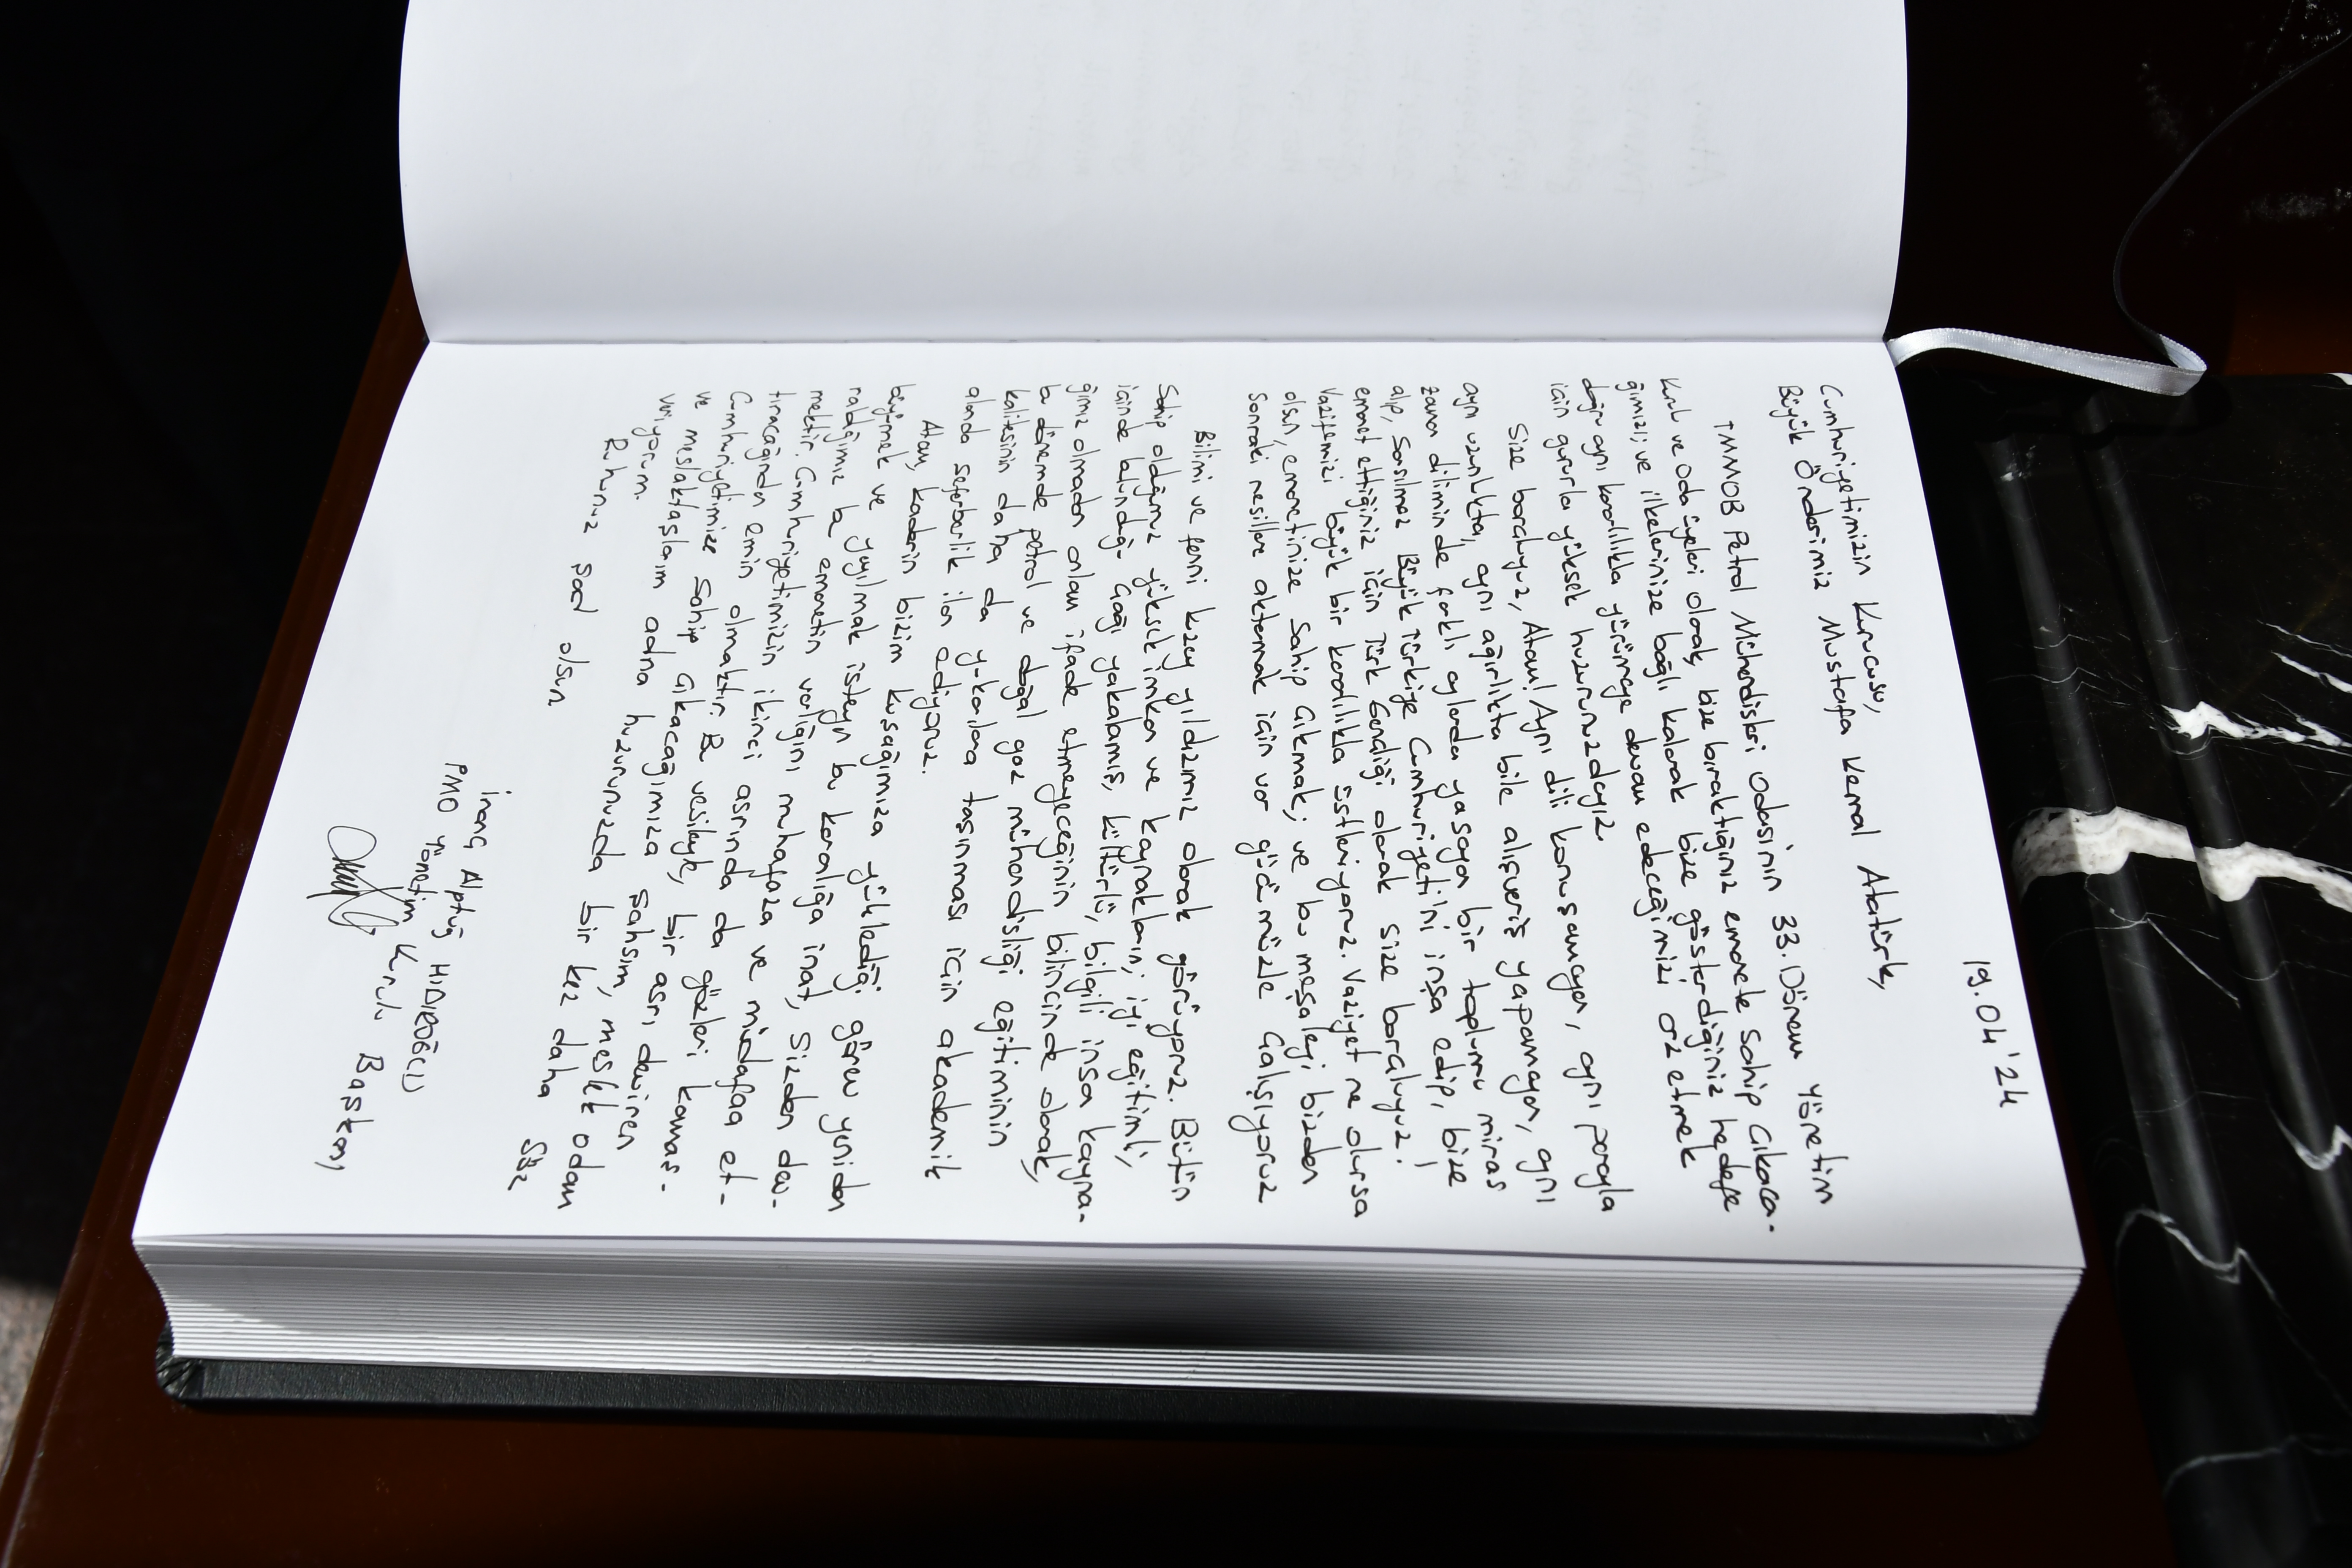 19.04'24
Cumhuriyetimizin Kurucusu,
Büyük Önderimiz Mustafa Kemal Atatürk,
TMMOB Petrol Mühendisleri Odasının 33. Dönem Yönetim
Kurulu ve Oda üyeleri olarak, bize bıraktığınız emanete sahip çıkaca-
ğımızı; ve ilkelerinize bağlı kalarak bize gösterdiğiniz hedefe
doğru aynı kararlılıkla yürümeye devam edeceğimizi arz etmek
için gururla yüksek huzurunuzdayız.
Size borçluyuz, Atam! Aynı dili konuşamayan, aynı parayla
aynı uzunlukta, aynı ağırlıkta bile alışveriş yapamayan, aynı
zaman diliminde farklı aylarda yaşayan bir toplumu miras
alıp, Sarsılmaz Büyük Türkiye Cumhuriyeti'ni inşa edip, bize
emanet ettiğiniz için Türk Gençliği olarak size borçluyuz!
Vazifemizi büyük bir kararlılıkla üstleniyoruz. Vaziyet ne olursa
olsun, emanetinize sahip çıkmak; ve bu meşaleyi bizden
sonraki nesillere aktarmak için var gücümüzle çalışıyoruz
Bilimi ve fenni kuzey yıldızımız olarak görüyoruz. Bütün
Sahip olduğumuz yüksek imkan ve kaynakların; iyi eğitimli,
içinde bulunduğu çağı yakalamış, kültürlü, bilgili insan kayna-
ğımız olmadan anlam ifade etmeyeceğinin bilincinde olarak,
bu dönemde petrol ve doğal gaz mühendisliği eğitiminin
kalitesinin daha da yukarılara taşınması için akademik
alanda seferberlik ilan ediyoruz.
Atam, kaderin bizim kuşağımıza yüklediği görev yeniden
büyümek ve yayılmak isteyen bu karanlığa inat, Sizden dev-
raldığımız bu emanetin varlığını muhafaza ve müdafaa et-
mektir. Cumhuriyetimizin ikinci asrında da gözleri kamaş-
tıracağından emin olmaktır. Bu vesileyle, bir asrı deviren
Cumhuriyetimize sahip çıkacağımıza şahsım, meslek odam
ve meslektaşlarım adına huzurunuzda bir kez daha söz
veriyorum.
Ruhunuz şad olsun
İnanç Alptuğ HIDIROĞLU
PMO Yönetim Kurulu Başkanı